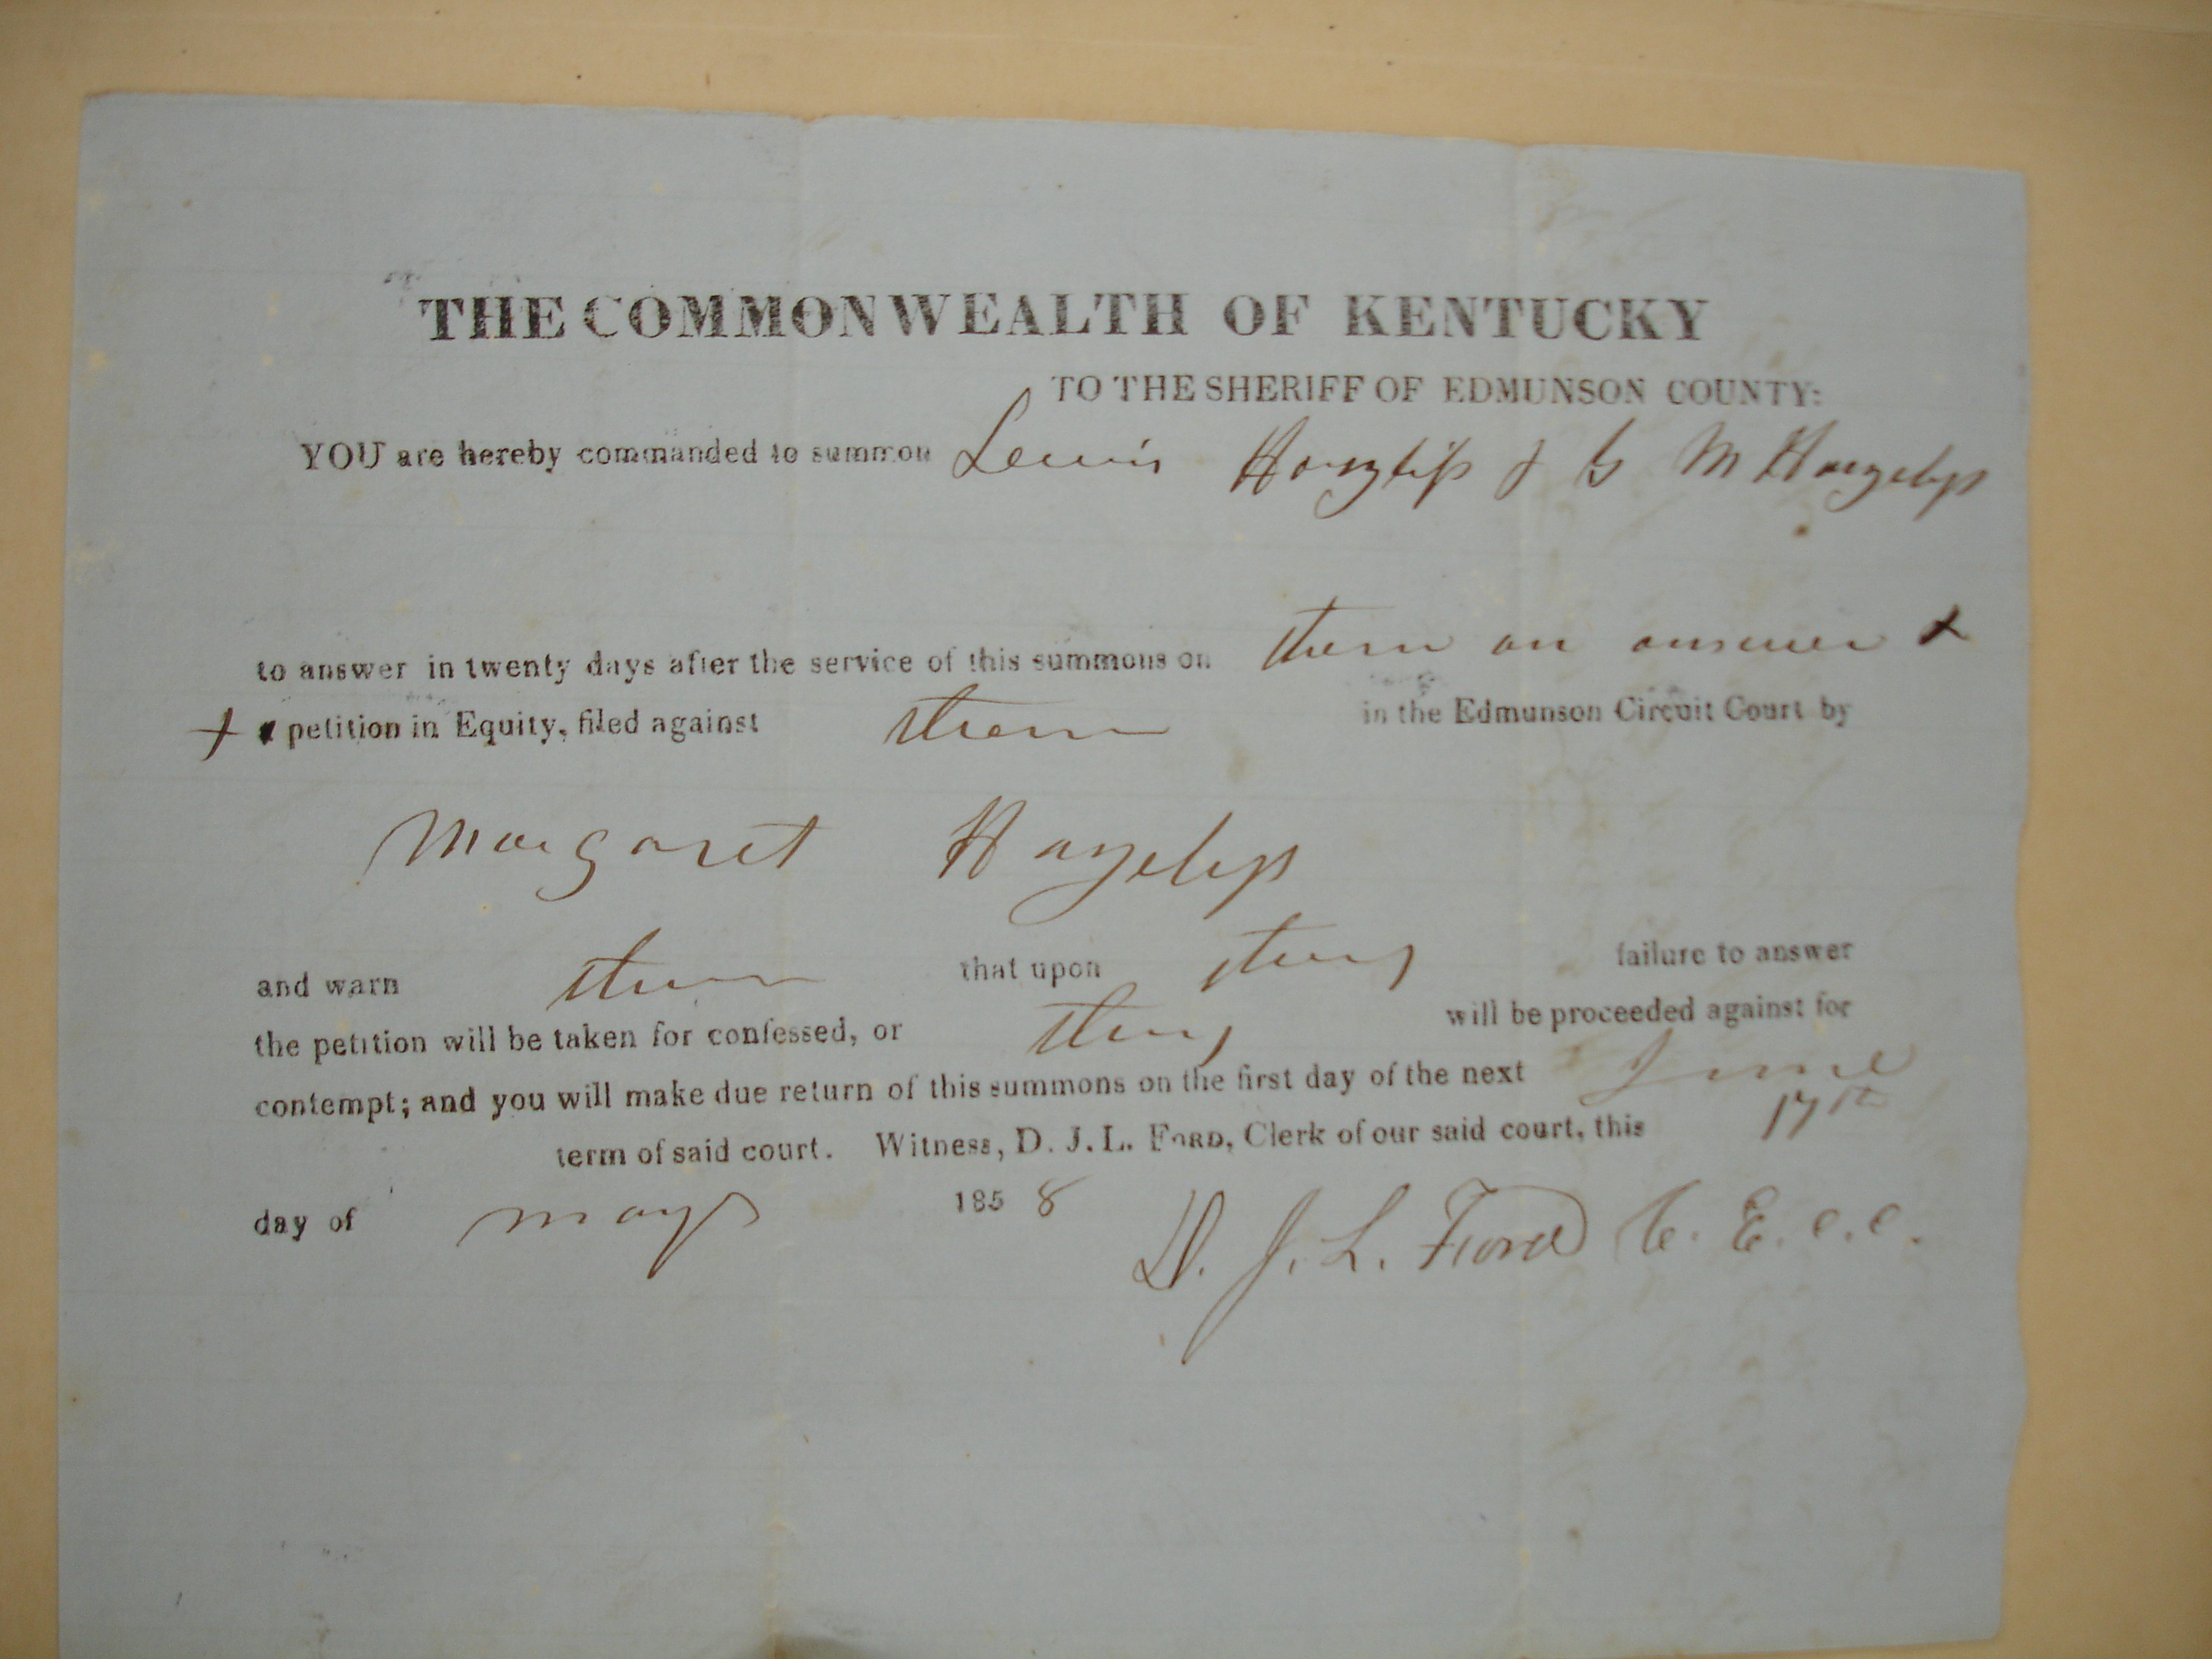 THE COMMONWEALTH OF KENTUCKY
TO THE SHERIFF OF EDMUNSON COUNTY:
YOU are hereby commanded to summon Lewis Hazelip & G M Hazelip
to answer in twenty days after the service of this summons on them an answer x
x a petition in Equity, filed against them in the Edmunson Circuit Court by
Margaret Hazelip
and warn them that upon their failure to answer
the petition will be taken for confessed, or they will be proceeded against for
contempt; and you will make due return of this summons on the first day of the next June
term of said court. Witness, D. J. L. FORD, Clerk of our said court, this 17th
day of may 1858 D. J. L. Ford C. E. C. C.